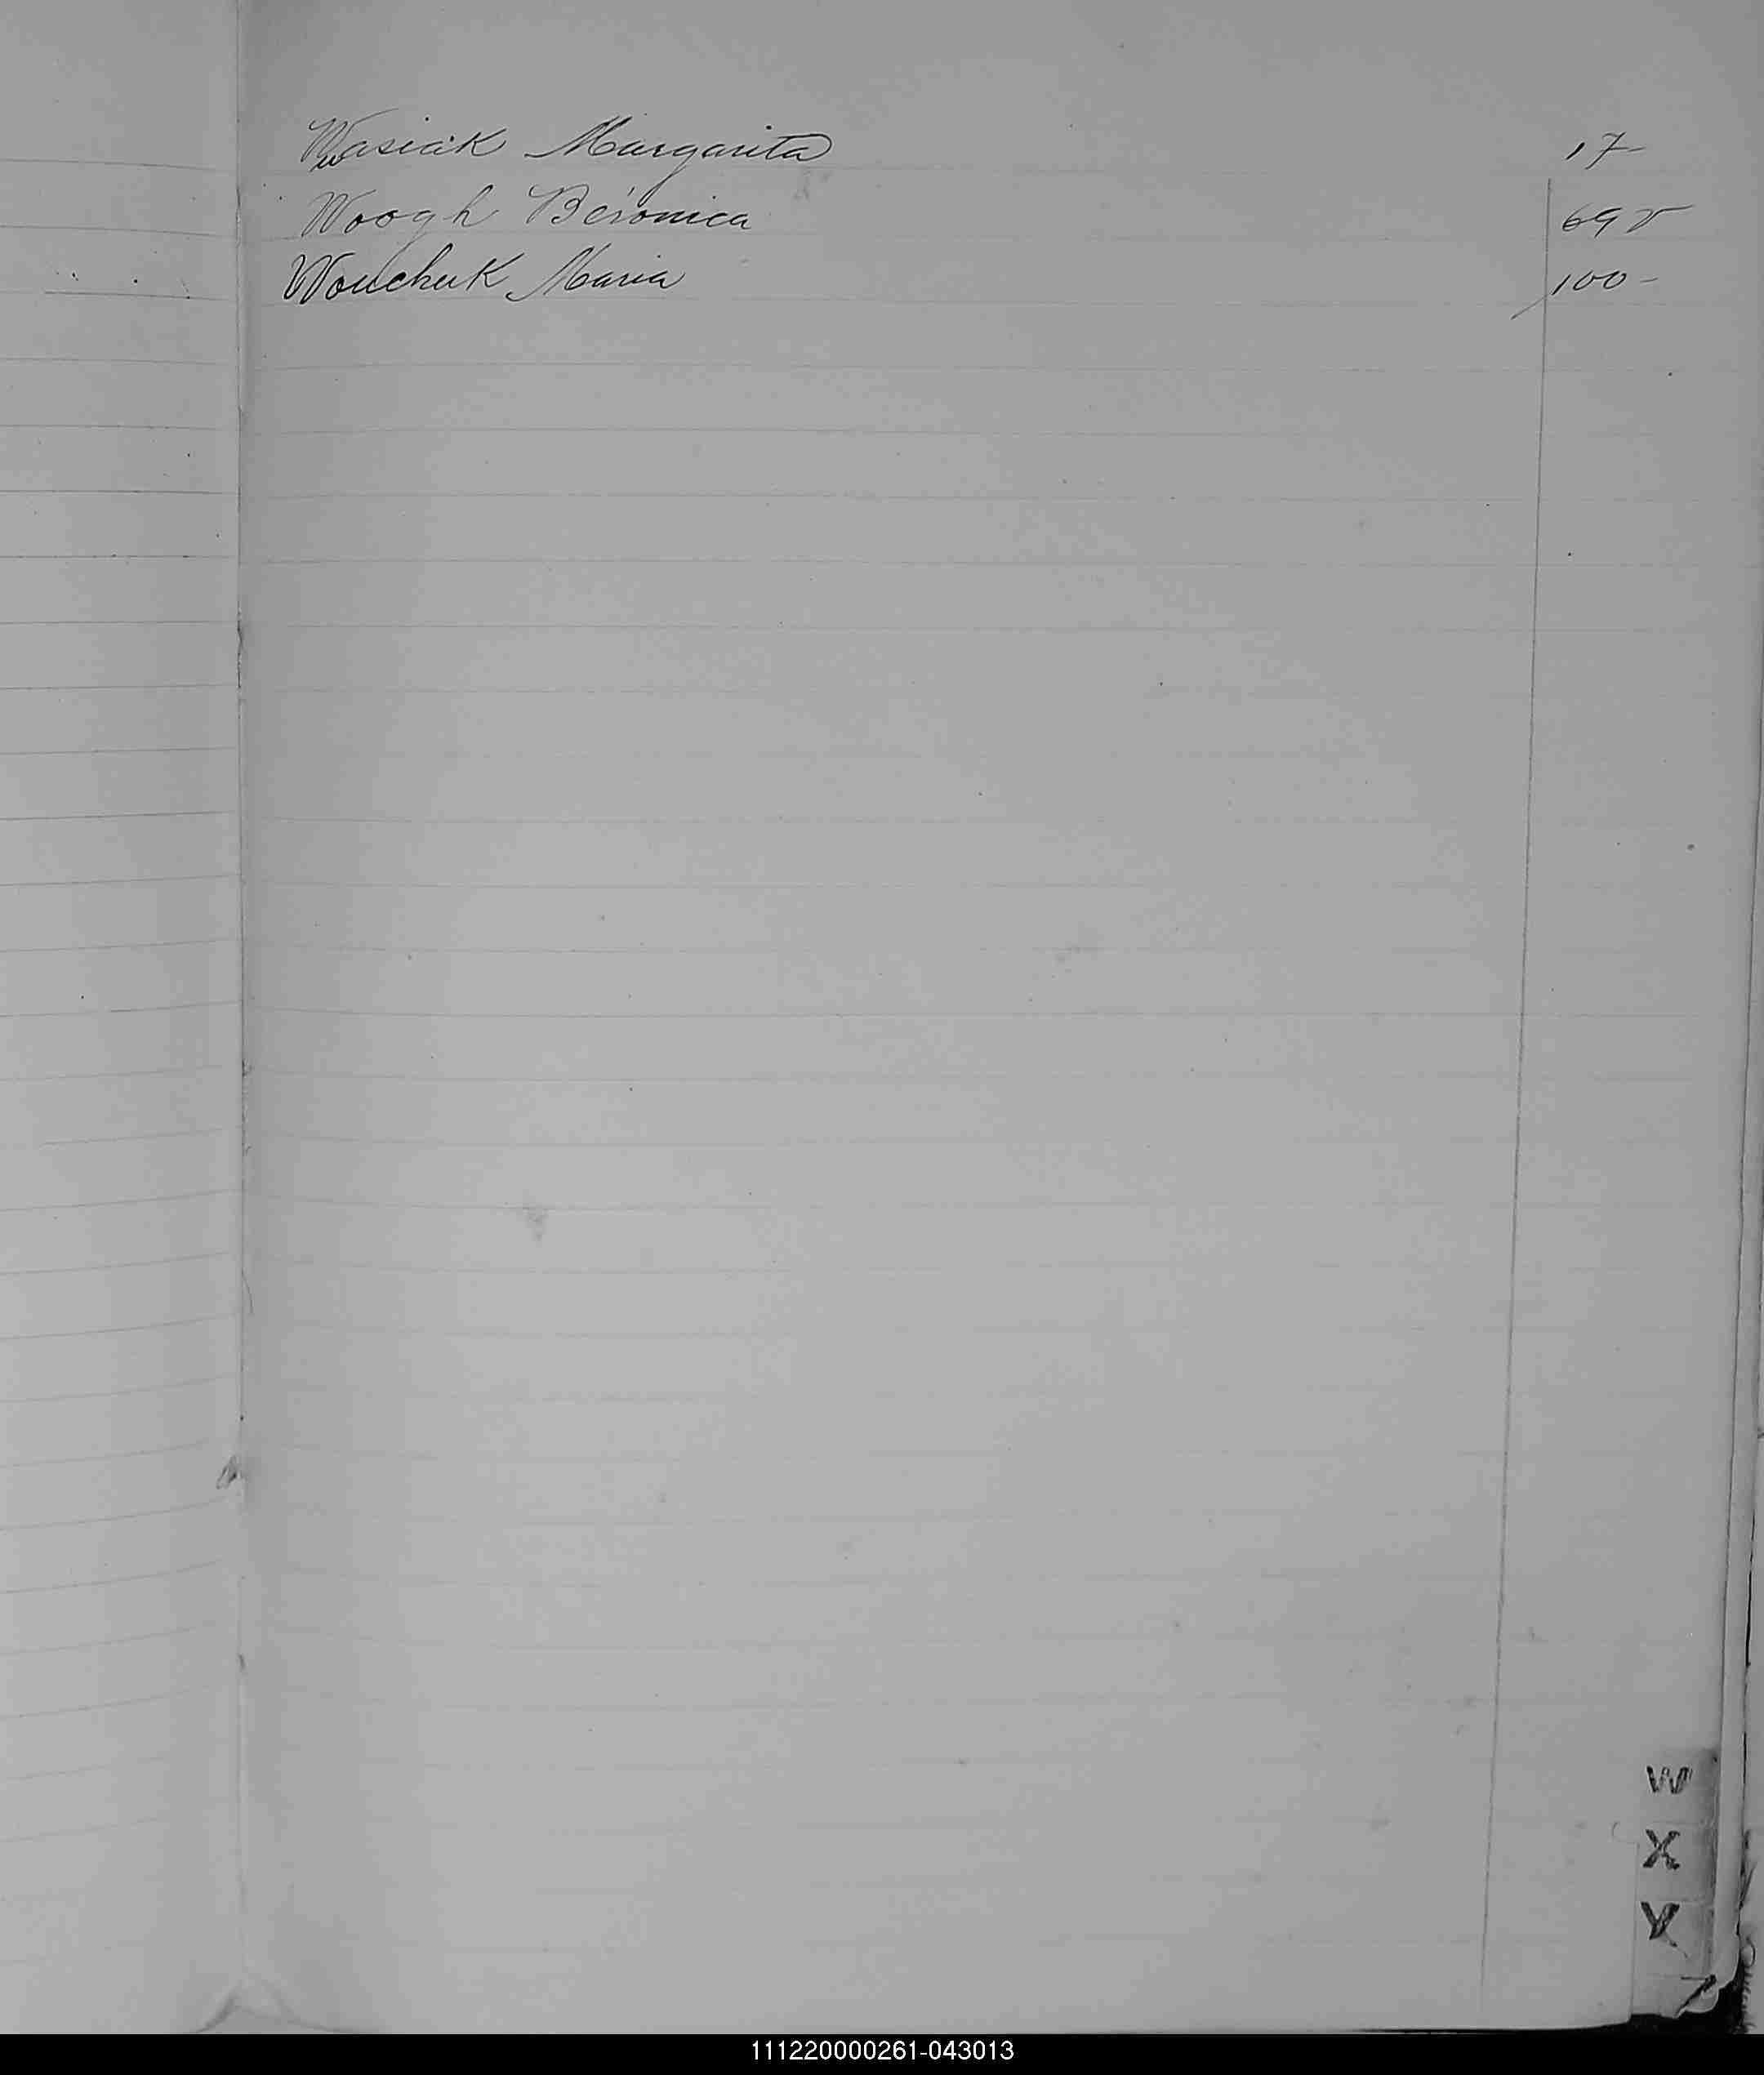 Wasiak Margarita 17
Woogh Berónica 69 v
Wouchuk Maria 100
W
X
Y
Z
111220000261-043013